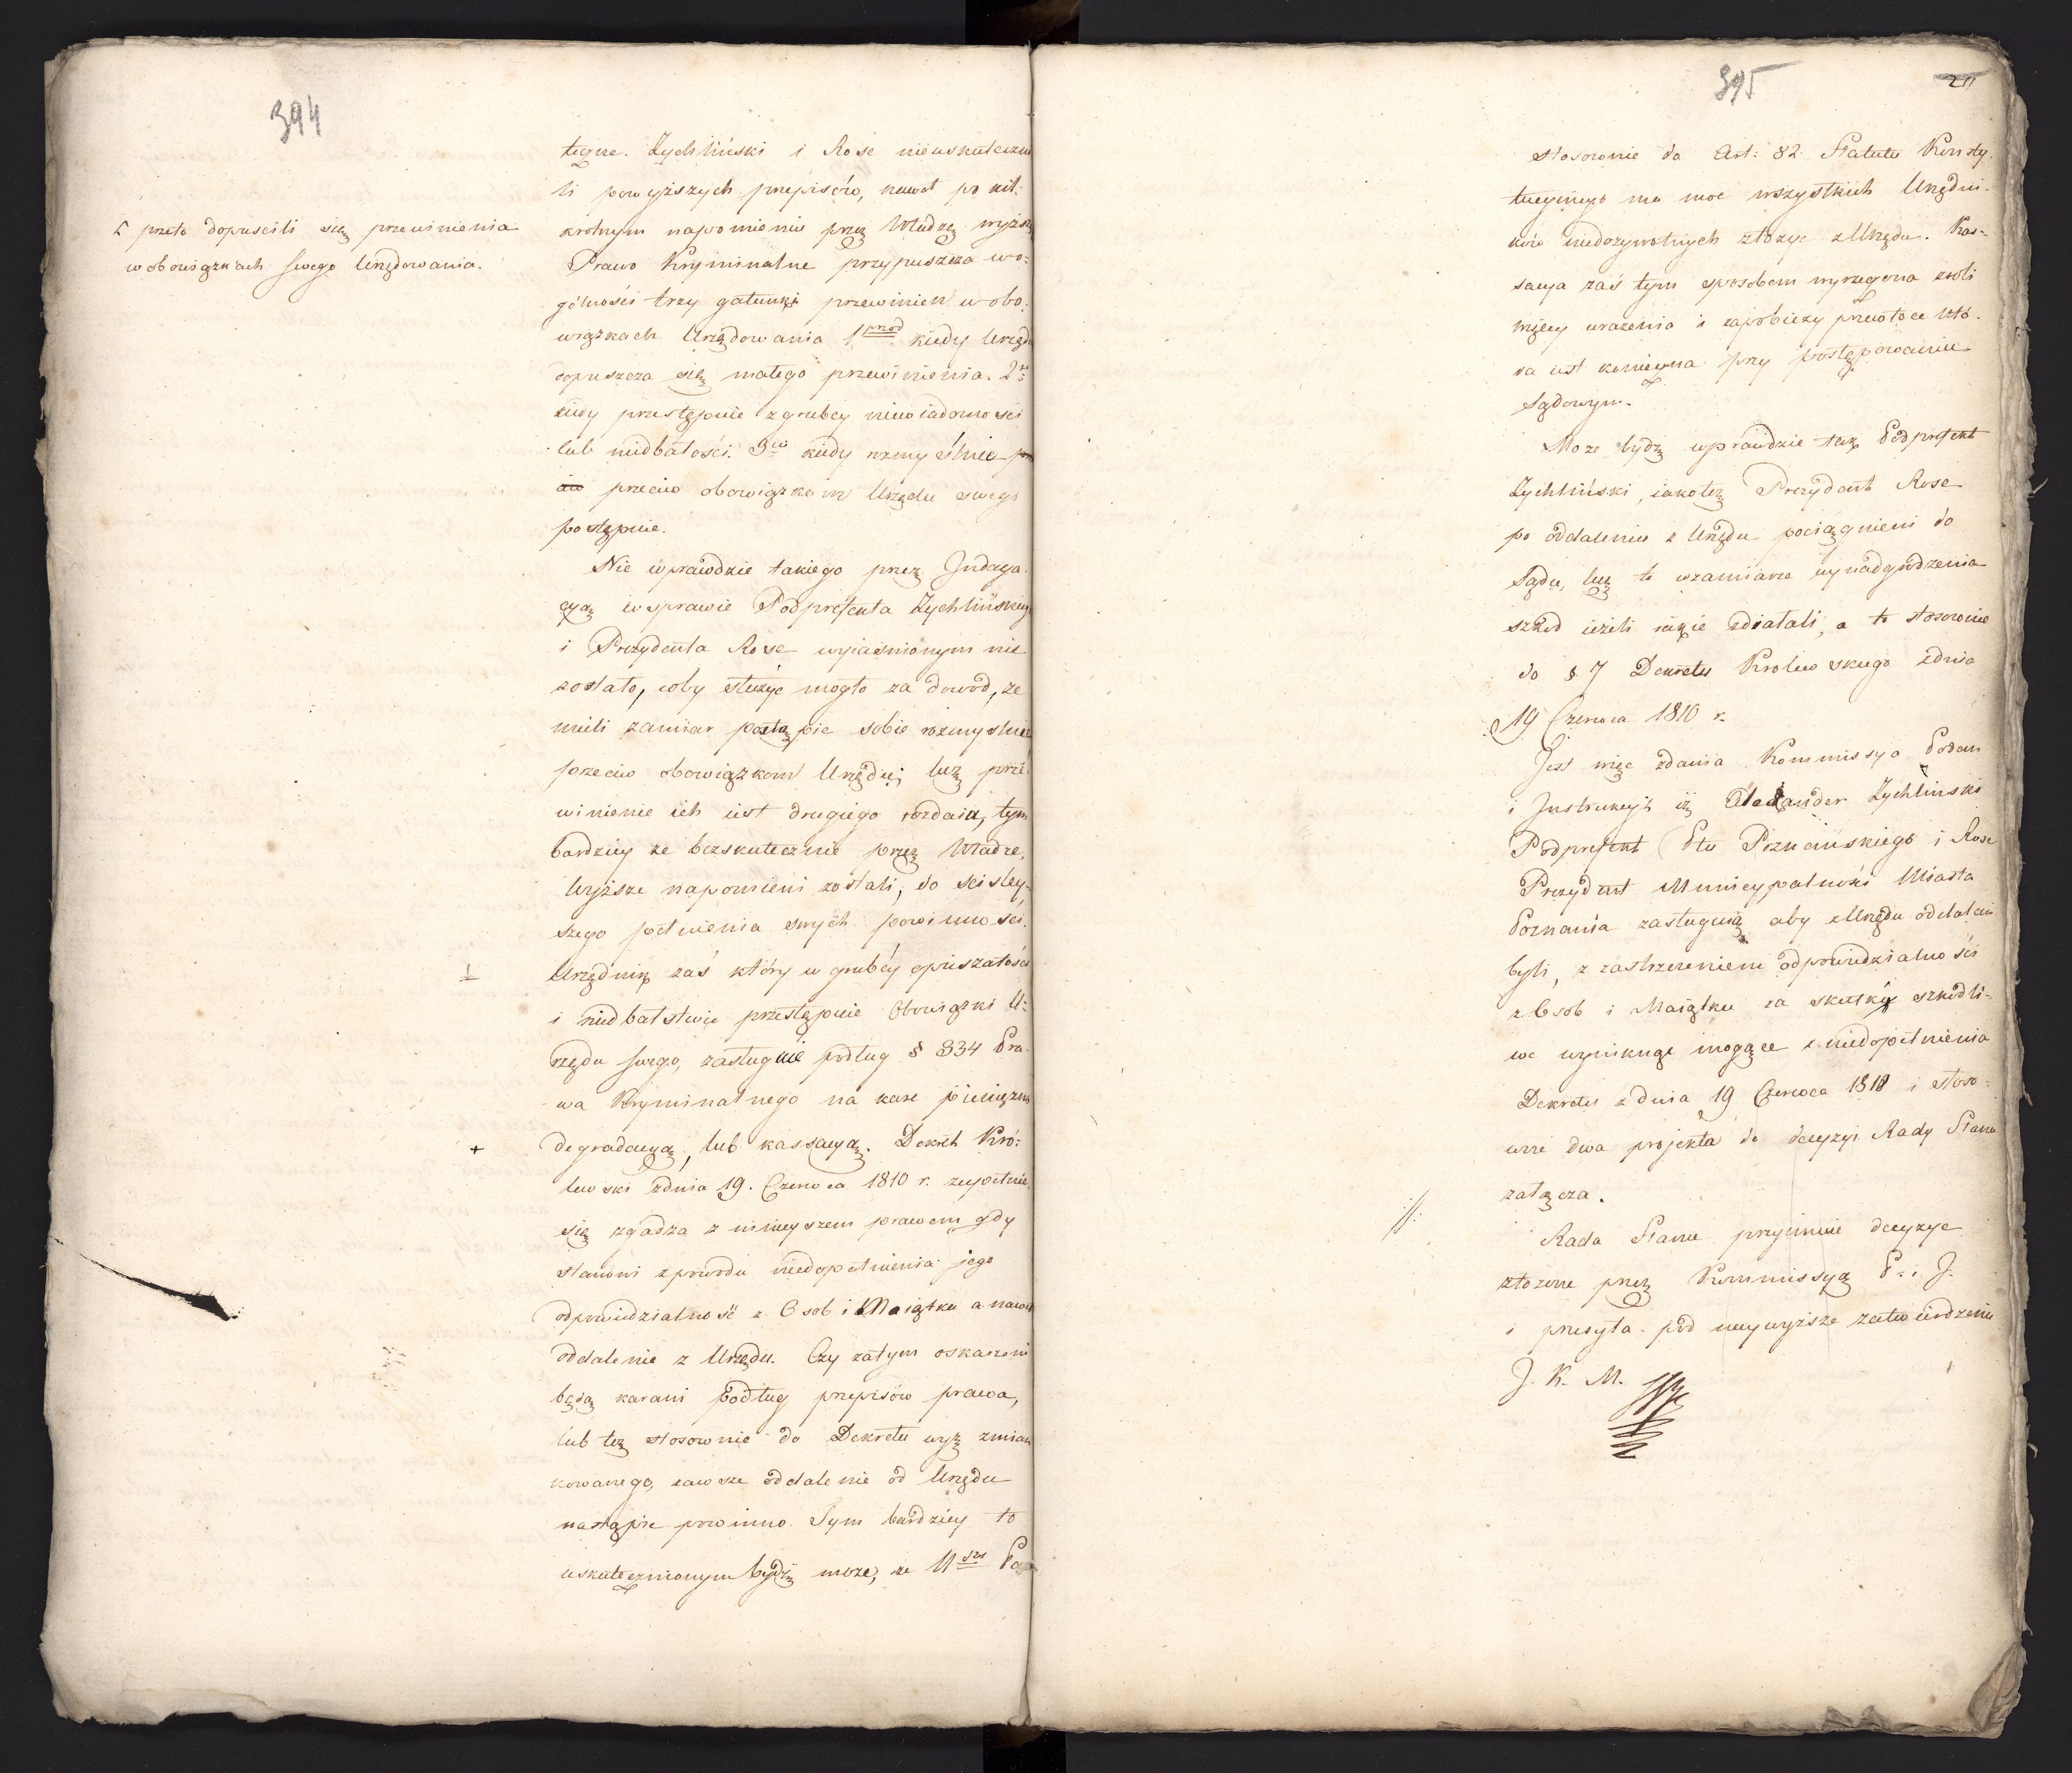 394
tegne. Zychliński i Rose nieuskuteczni
li powyższych przepisów, nawet po kil-
krotnym napomnieniu przez Władzę wyższą
Ⅰ przeto dopuscili się przewinienia
w obowiązkach swego Urzędowania.
Prawo Kryminalne przypuszcza wo-
gólności trzy gatunki przewinień w obo-
wiązkach Urzędowania 1przod kiedy Urzęd
dopuszcza się małego przewinienia. 2re
kiedy przestępuie z grubey niewiadomosci
lub niedbałości. 3cie kiedy rozmyślnie
przeciw obowiązkom Urzędu swego
postępuie.
Nie wprawdzie takiego przez Indaga-
cyą w sprawie Podprefekta Zychlińskieg
i Prezydenta Rose wyiaśnionym nie
zostało, coby służyć mogło za dowód, że
mieli zamiar postąpić sobie rozmyslnie
przeciw obowiązkom Urzędu; lecz prze-
winienie ich iest drugiego rodzaiu, tym
bardziey że bezskutecznie przez Władze,
Wyższe napomnieni zostali, do scisley-
szego pełnienia swych powinności.
Urzędnik zaś który w grubéy opieszałości
i niedbalstwie przestępuie Obowiązki U-
rzędu swego, zasługuie podług § 334 Pra-
wa Kryminalnego na karę pieniężną
+ degradacyą, lub kassacyą. Dekret Kró-
lewski zdnia 19. Czerwca 1810 r. zupełnie
się zgadza z ninieyszem prawem gdy
stanowi z powodu niedopełnienia jego
odpowiedzialność z Osob i Maiątku a nawet
oddalenie z Urzędu. Czy zatym oskarżeni
będą karani podług przepisów prawa,
lub też stosownie do Dekretu wyż zmian
kowanego, zawsze oddalenie od Urzędu
nastąpić powinno. Tym bardziey to
uskutecznionym bydź może, że
395
stosownie do Art: 82 Statutu Konsty-
tucyinego ma moc wszystkich Urzędni-
ków niedożywotnych złożyć z Urzędu. Kas-
sacya zaś tym sposobem wyrzeczona zrobi
więcey wrażenia i zapobieży przewłoce któ-
ra iest konieczna przy postępowaniu
Sądowym.
Może bydź wprawdzie tak Podprefekt
Zychliński, iakoteż Prezydent Rose
po oddaleniu z Urzędu pociągnieni do
Sądu, lecz to wzamiarze wynadgrodzenia
szkód ieżeli iakie zdziałali, a to stosownie
do § 7 Dekretu Krolewskiego zdnia
19 Czerwca 1810 r.
Jest więc zdania Kommissya Podan
i Instrukcyi iż Alexander Zychliński
Podprefekt Ptu Poznańskiego i Rose
Prezydent Municypalności Miasta
Poznania zasługuią aby z Urzędu oddaleni
byli, z zastrzeżeniem odpowiedzialności
z Osob i Maiątku za skutki szkodli-
we wyniknąć mogące z niedopełnienia
Dekretu zdnia 19 Czerwca 1810 i stoso-
wne dwa projekta do decyzyi Rady Stanu
załącza.
Rada Stanu przyimuie decyzye
złożone przez Kommissyą P. i J.
i przesyła pod naywyższe zatwierdzenie
J. K. M.